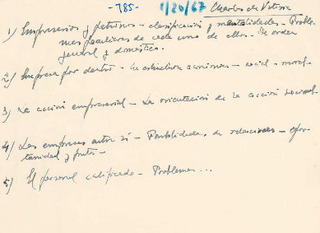 - 785 - 1/20/67 Charlas de Vitoria
1) Empresarios y patronos - clasificación y mentalidades - Proble-
mas peculiares de cada uno de ellos - De orden
general y doméstico.
2) Empresa por dentro - La estructura - social - moral -
3) La acción empresarial - La orientación de la acción
4) Las empresas entre sí - Posibilidades de relaciones - opor-
tunidad y
5) El personal calificado - Problemas ...